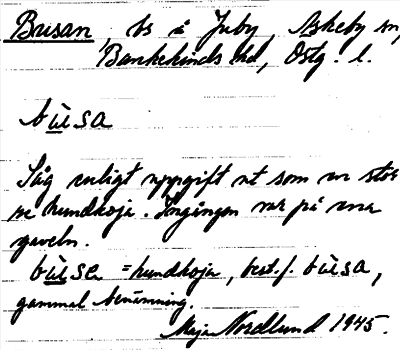 Busan, bs å Juby, Askeby sn,
Bankekinds hd, Östg. l.
bu̲sa
Såg enligt uppgift ut som en stör
re hundkoja. Ingången var på ena
gaveln.
bu̲se = hundkoja, best. f. bu̲sa,
gammal benämning.
Maja Nordlund 1945.